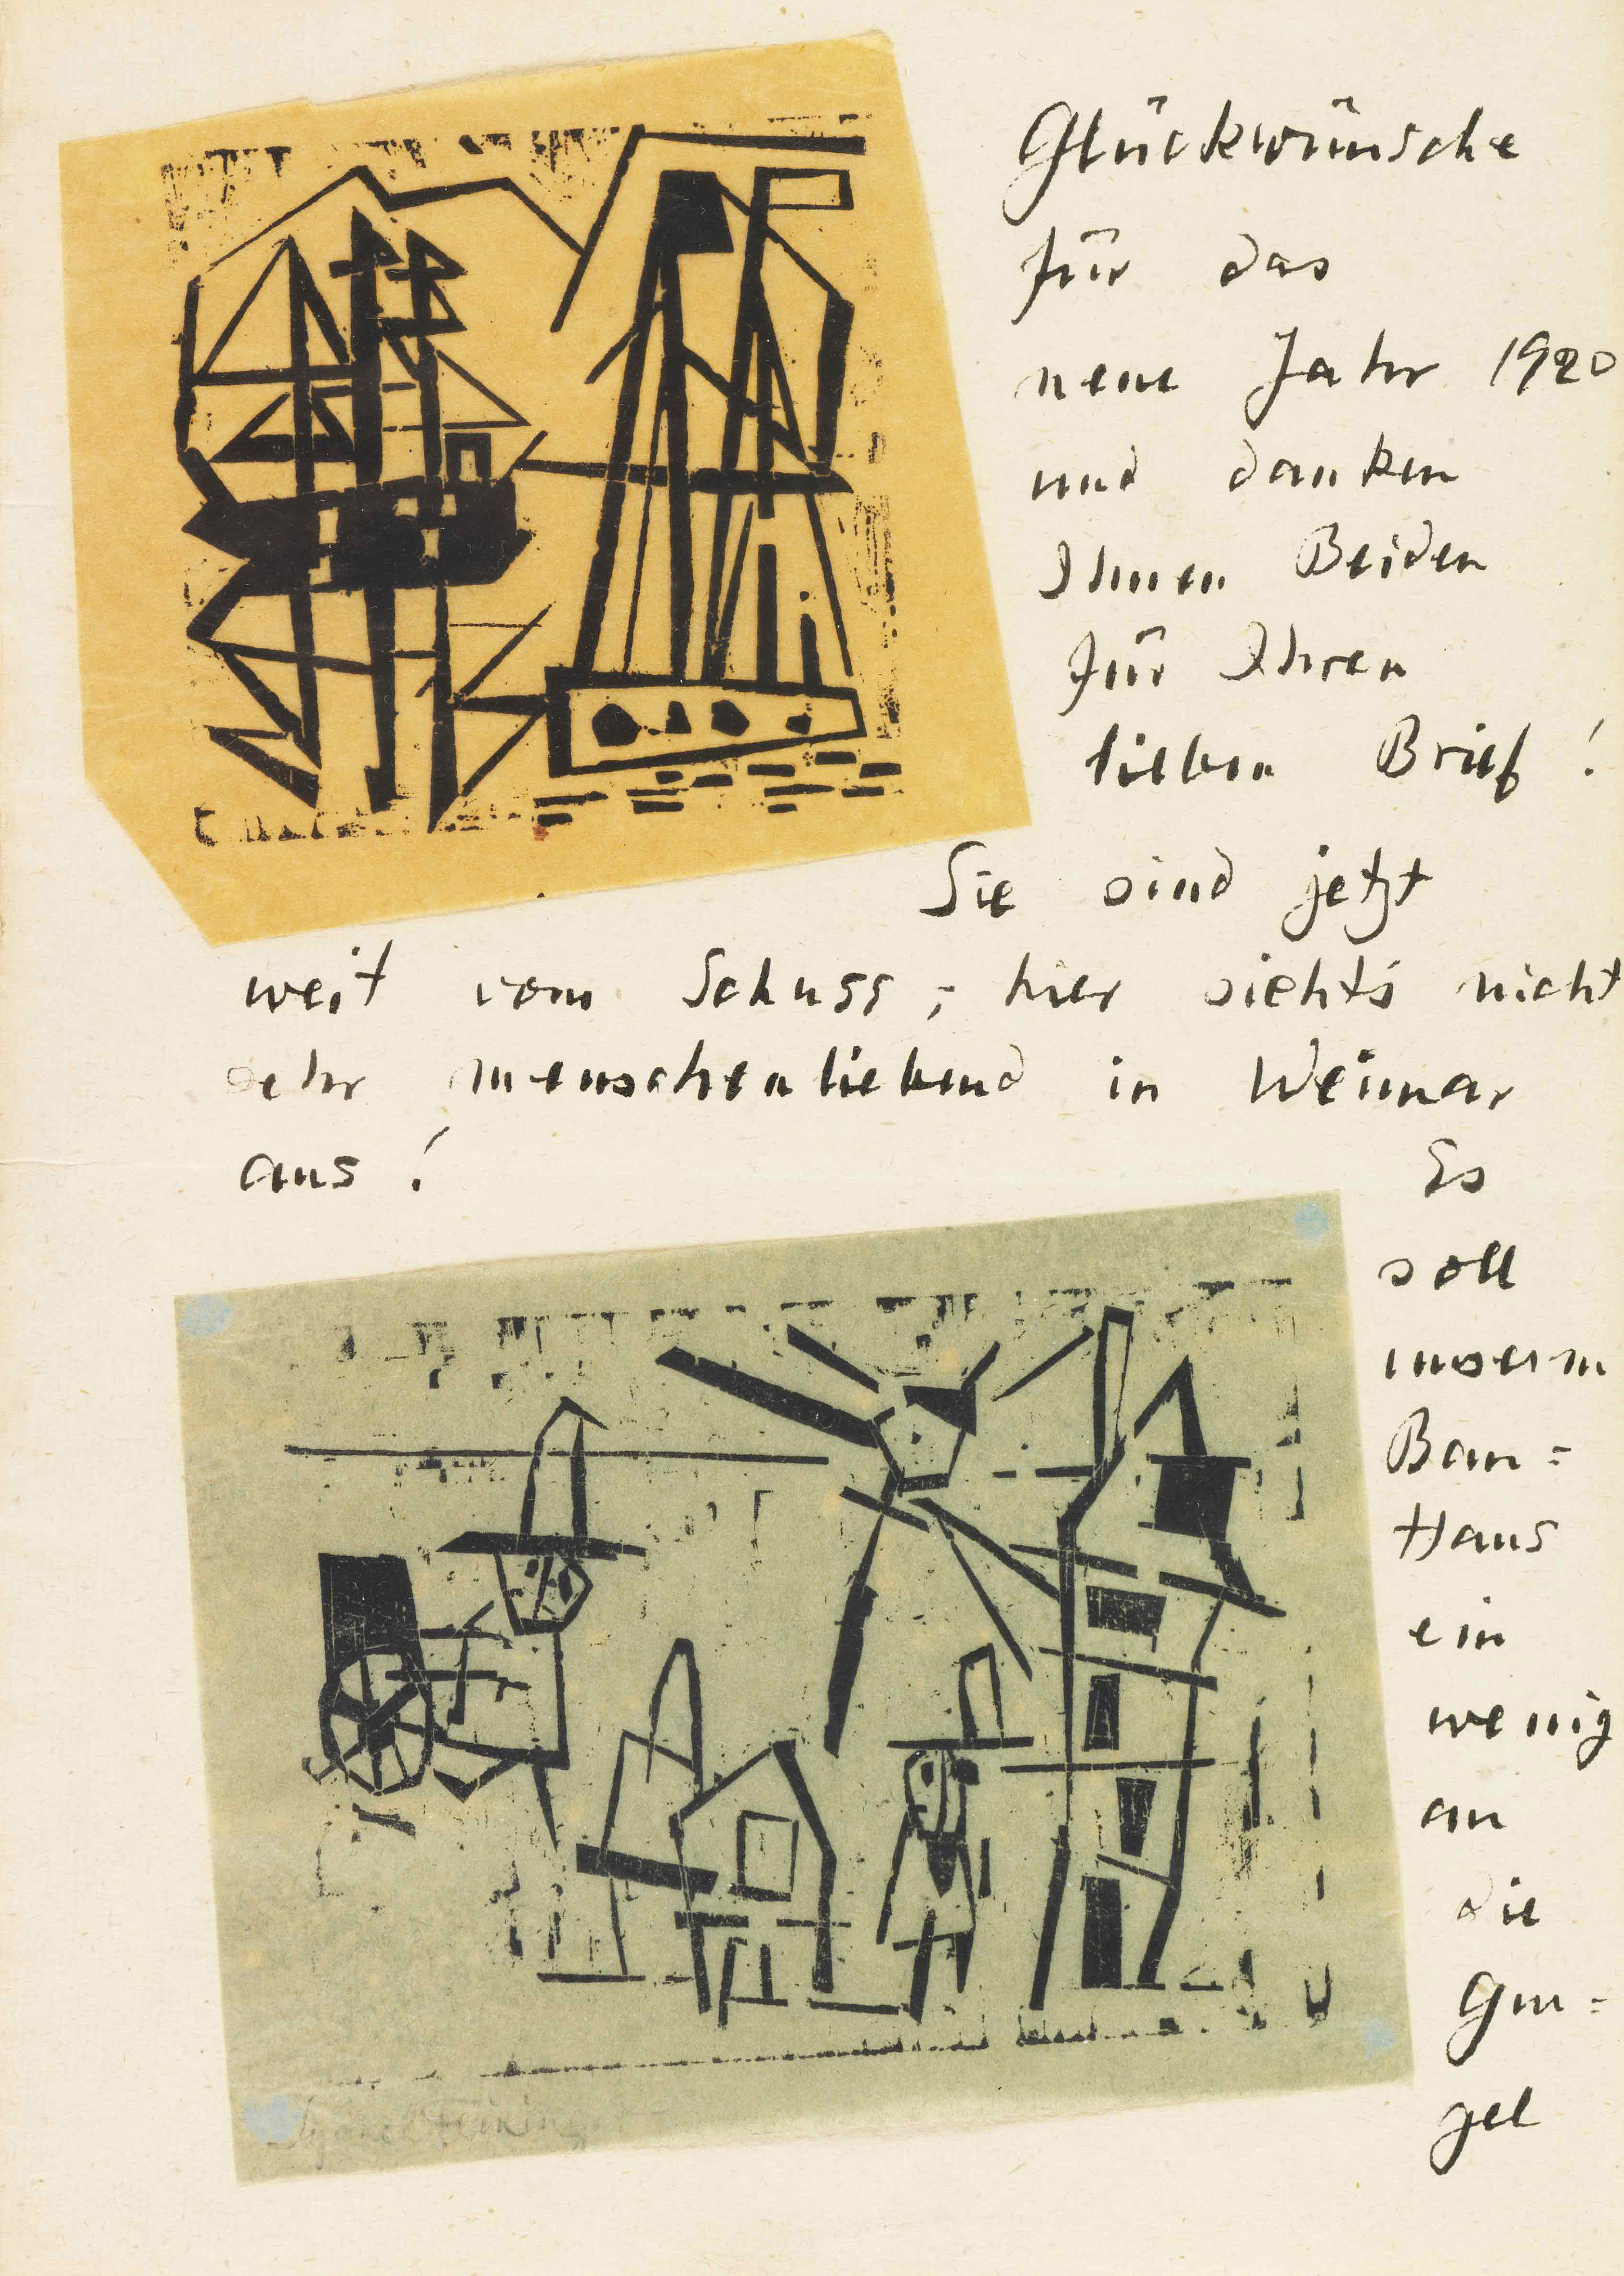 Glückwünsche
für das
neue Jahr 1920
und danken
Ihnen Beiden
für Ihren
lieben Brief!
Sie sind jetzt
weit vom Schuss; hier siehts nicht
sehr menschenliebend in Weimar
aus!
Es
soll
unserm
Bau=
Haus
ein
wenig
an
die
Gur=
gel
Lyonel Feininger